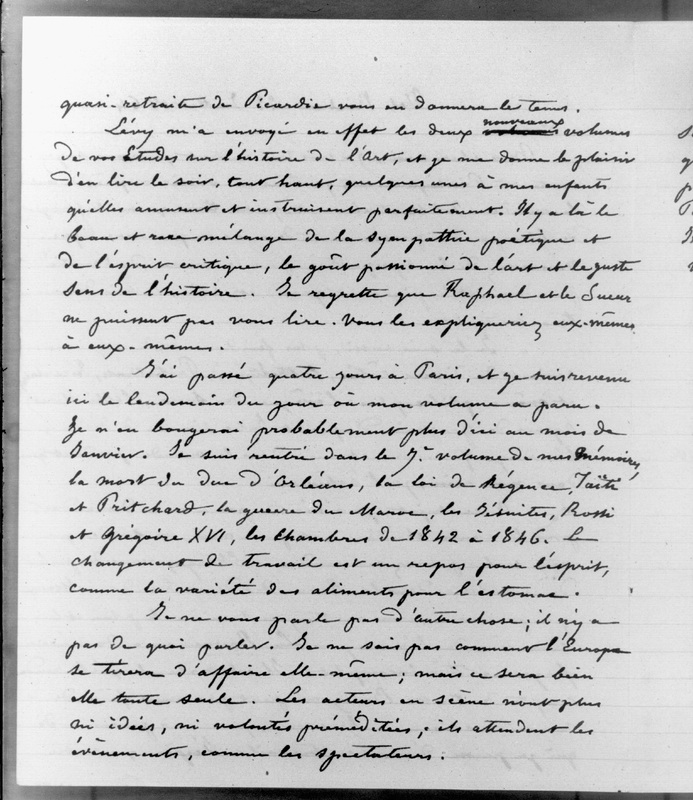 quasi-retraite de Picardie vous en donnera le tems.
Lévy m'a envoyé en effet les deux nouveaux volumes
de vos Etudes sur l'histoire de l'art, et je me donne le plaisir
d'en lire le soir, tout haut, quelques unes à mes enfants
qu'elles amusent et instruisent parfaitement. Il y a là le
beau et rare mélange de la sympathie poétique et
de l'esprit critique, le goût passionné de l'art et le juste
sens de l'histoire. Je regrette que Raphael et le Sueur
ne puissent pas vous lire. Vous les expliqueriez eux-mêmes
à eux-mêmes.
J'ai passé quatre jours à Paris, et je suis revenu
ici le lendemain du jour où mon volume a paru.
Je n'en bougerai probablement plus d'ici au mois de
Janvier. Je suis rentré dans le 7e volume de mes Mémoires,
la mort du duc d'Orléans, la loi de Régence, Taïti
et Pritchard, la guerre du Maroc, les Jésuites, Rossi
et Grégoire XVI, les Chambres de 1842 à 1846. Le
changement de travail est un repos pour l'esprit,
comme la variété des aliments pour l'estomac.
Je ne vous parle pas d'autre chose; il n'y a
pas de quoi parler. Je ne sais pas comment l'Europe
se tirera d'affaire elle-même; mais ce sera bien
elle toute seule. Les acteurs en scène n'ont plus
ni idées, ni volontés préméditées; ils attendent les
évènements, comme les spectateurs.